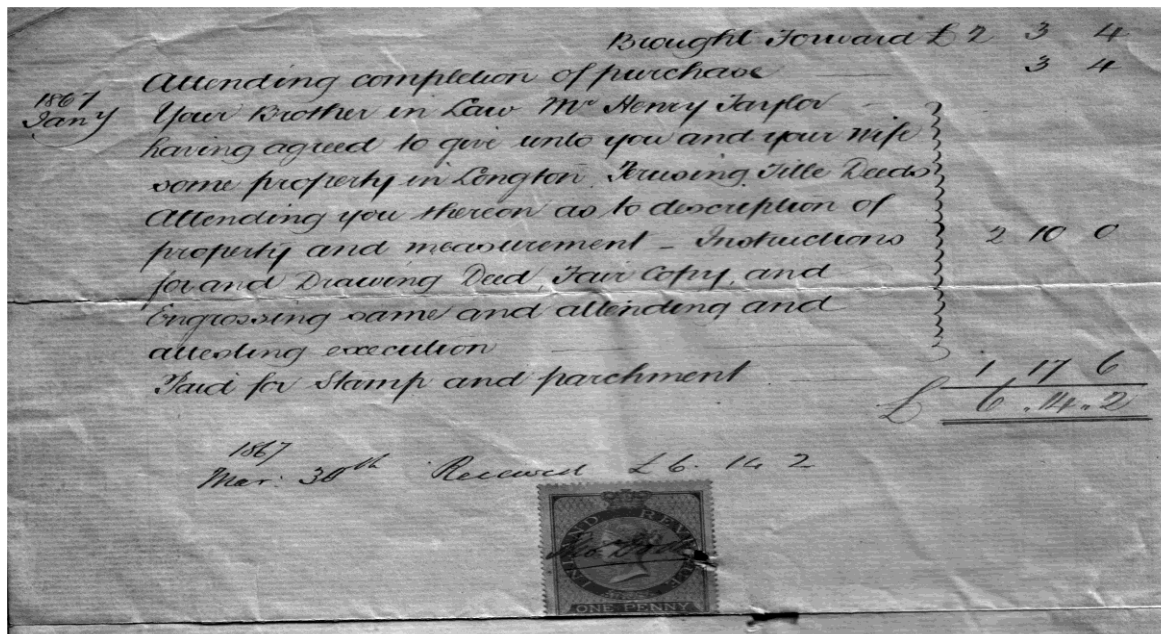 Brought Forward £ 2 3 4
Attending completion of purchase 3 4
1867
Jany Your Brother in Law Mr Henry Taylor
having agreed to give unto you and your Wife
some property in Longton, Perusing Title Deeds
Attending you thereon as to description of
property and measurement – Instructions 2 10 0
for and Drawing Deed, Fair Copy, and
Engrossing same and attending and
attesting execution
Paid for Stamp and parchment 1 17 6
£ 6 . 14 . 2
1867
Mar: 30th Received £6. 14 2
INLAND REVENUE
ONE PENNY